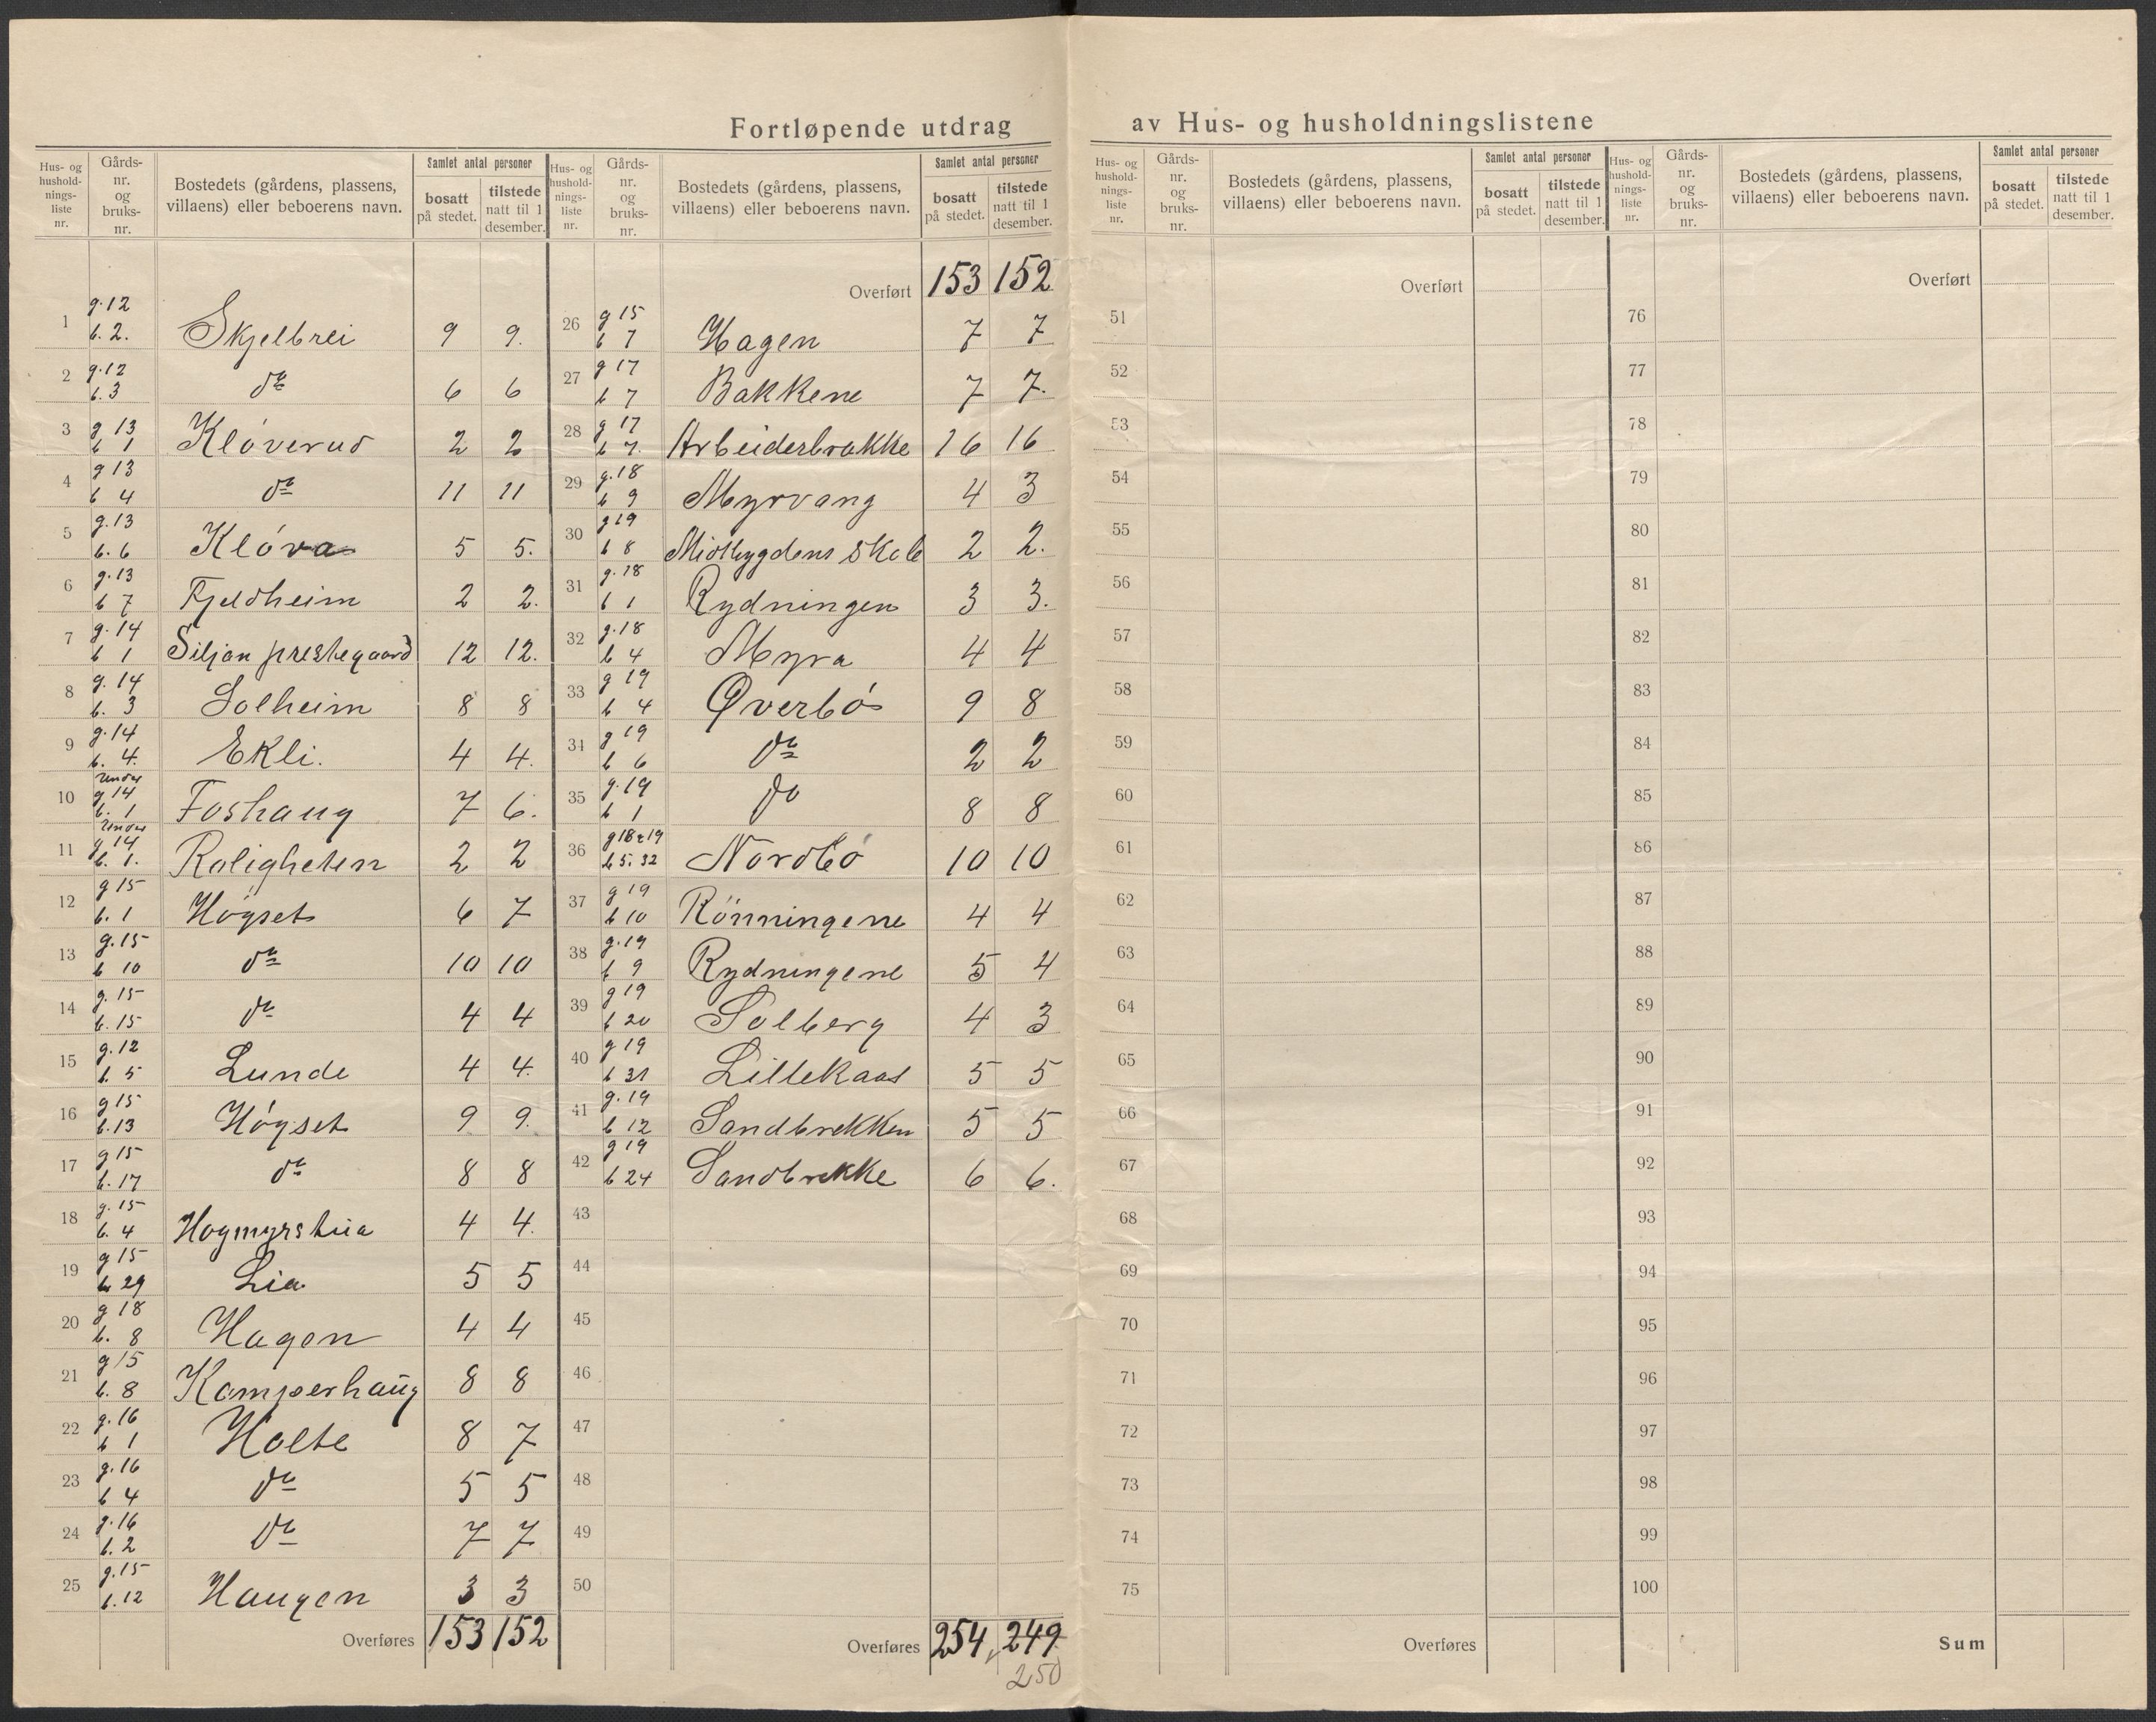 Fortløpende utdrag av Hus- og husholdningslistene
Hus- og hushold-nings-liste nr. | Gårds-nr. og bruks-nr. | Bostedets (gårdens, plassens, villaens) eller beboerens navn. | Samlet antal personer | bosatt på stedet. | tilstede natt til 1 desember.
1 g.12 b.2. Skjelbrei 9 9.
2 g.12 b.3 do 6 6
3 g 13 b 1 Kløverud 2 2
4 g 13 b 4 do 11 11
5 g.13 b.6 Kløva 5 5.
6 g.13 b 7 Fjeldheim 2 2.
7 g.14 b 1 Siljan prestegaard 12 12.
8 g.14 b.3 Solheim 8 8
9 g.14 b.4. Ekli. 4 4.
10 under g 14 b.1 Foshaug 7 6.
11 under g 14 b.1. Roligheten 2 2
12 g 15 b.1 Høgset 6 7
13 g.15 b 10 do 10 10
14 g.15 b.15 do 4 4
15 g.12 b.5 Lunde 4 4.
16 g 15 b.13 Høgset 9 9.
17 g 15 b.17 do 8 8
18 g.15 b.4 Hogmyrstua 4 4.
19 g 15 b 29 Lia 5 5
20 g 18 b.8 Hagen 4 4
21 g 15 b.8 Kamperhaug 8 8
22 g.16 b 1 Holte 8 7
23 g.16 b 4 do 5 5
24 g.16 b.2 do 7 7
25 g.15 b.12 Haugen 3 3
Overføres 153 152
Hus- og hushold-nings-liste nr. | Gårds-nr. og bruks-nr. | Bostedets (gårdens, plassens, villaens) eller beboerens navn. | Samlet antal personer | bosatt på stedet. | tilstede natt til 1 desember.
Overført 153 152
26 g 15 b 7 Hagen 7 7
27 g 17 b 7 Bakkene 7 7.
28 g 17 b 7. Arbeiderbrakke 16 16
29 g.18 b 9 Myrvang 4 3
30 g 19 b 8 Midtbygdens skole 2 2.
31 g.18 b 1 Rydningen 3 3.
32 g.18 b 4 Myra 4 4
33 g 19 b 4 Øverbø 9 8
34 g 19 b 6 do 2 2
35 g.19 b 1 do 8 8
36 g 18 & 19 b 5. 32 Nordbø 10 10
37 g 19 b 10 Rönningene 4 4
38 g.19 b 9 Rydningene 5 4
39 g 19 b 20 Solberg 4 3
40 g 19 b 31 Lillekaas 5 5
41 g.19 b 12 Sandbrekken 5 5
42 g 19 b 24 Sandbrekke 6 6.
43
44
45
46
47
48
49
50
Overføres 254, 249
250
Hus- og hushold-nings-liste nr. | Gårds-nr. og bruks-nr. | Bostedets (gårdens, plassens, villaens) eller beboerens navn. | Samlet antal personer | bosatt på stedet. | tilstede natt til 1 desember.
Overført
51
52
53
54
55
56
57
58
59
60
61
62
63
64
65
66
67
68
69
70
71
72
73
74
75
Overføres
Hus- og hushold-nings-liste nr. | Gårds-nr. og bruks-nr. | Bostedets (gårdens, plassens, villaens) eller beboerens navn. | Samlet antal personer | bosatt på stedet. | tilstede natt til 1 desember.
Overført
76
77
78
79
80
81
82
83
84
85
86
87
88
89
90
91
92
93
94
95
96
97
98
99
100
Sum